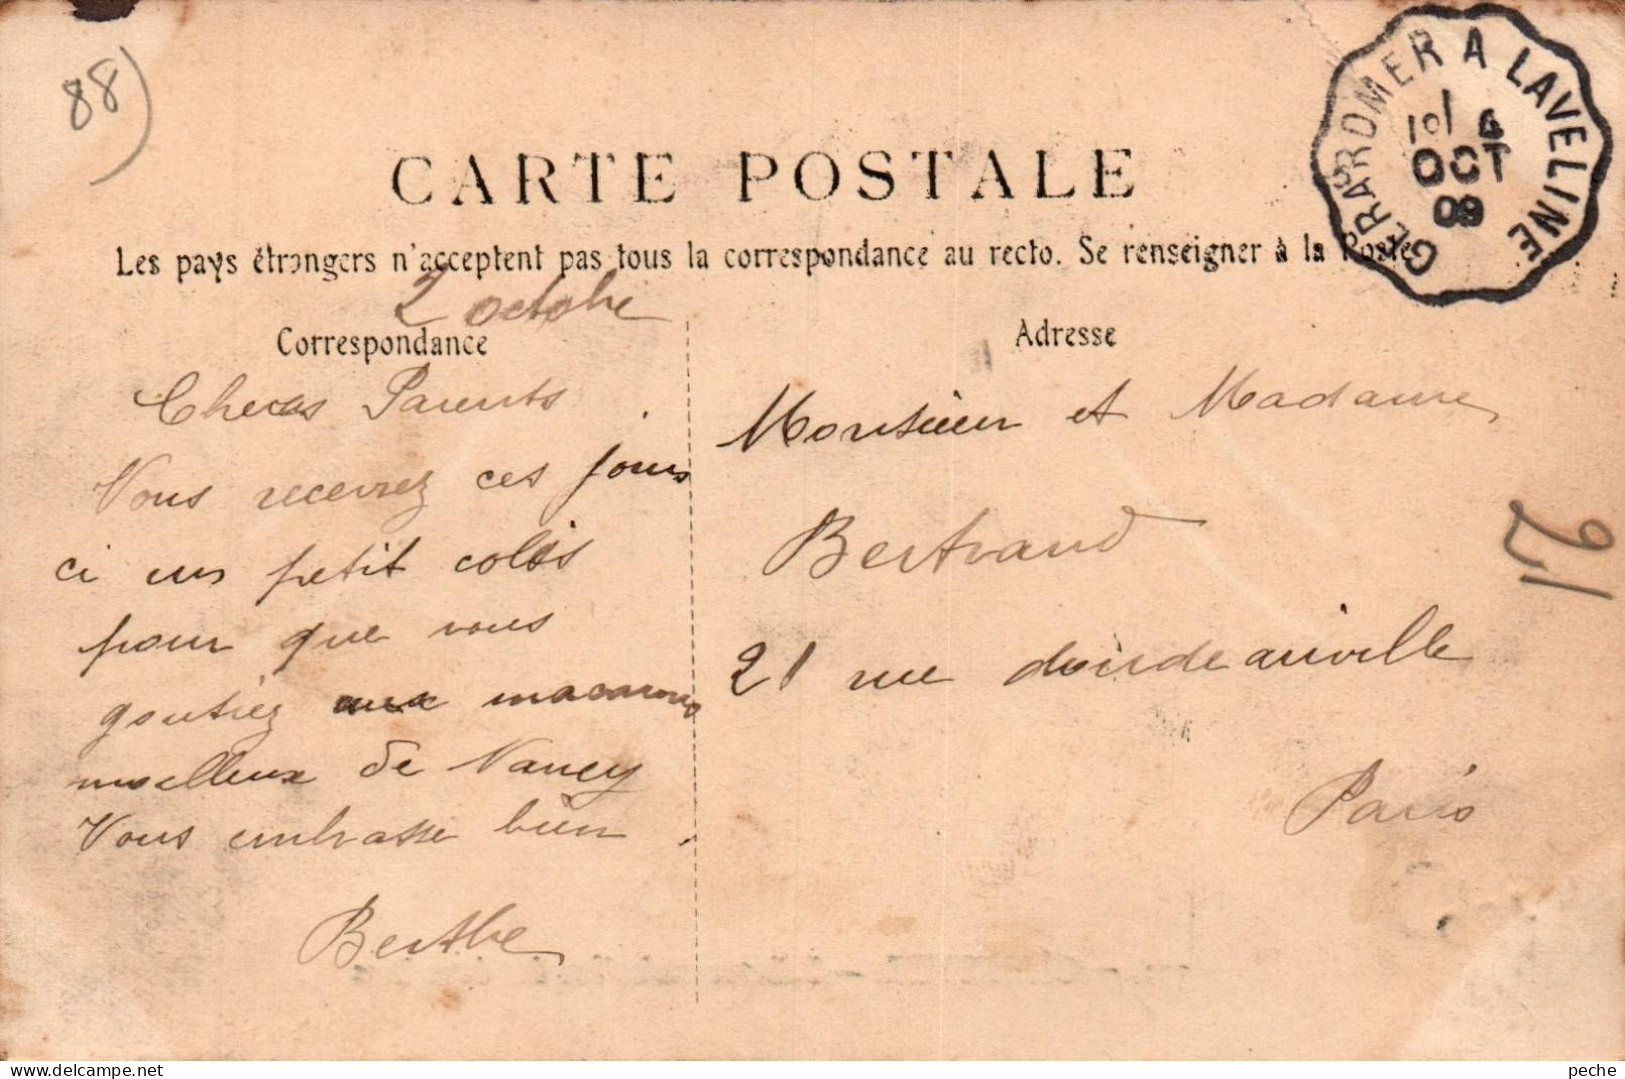 88)
GERARDMER A LAVELINE
OCT
09
CARTE POSTALE
Les pays étrangers n'acceptent pas tous la correspondance au recto. Se renseigner à la Poste
2 octobre
Correspondance
Adresse
Chers Parents
Vous recevrez ces jours
ci un petit colis
pour que vous
goutiez aux macarons
moelleux de Nancy
Vous embrasse bien.
Berthe
Monsieur et Madame
Bertrand
21 rue doudeauville
Paris
21
peche